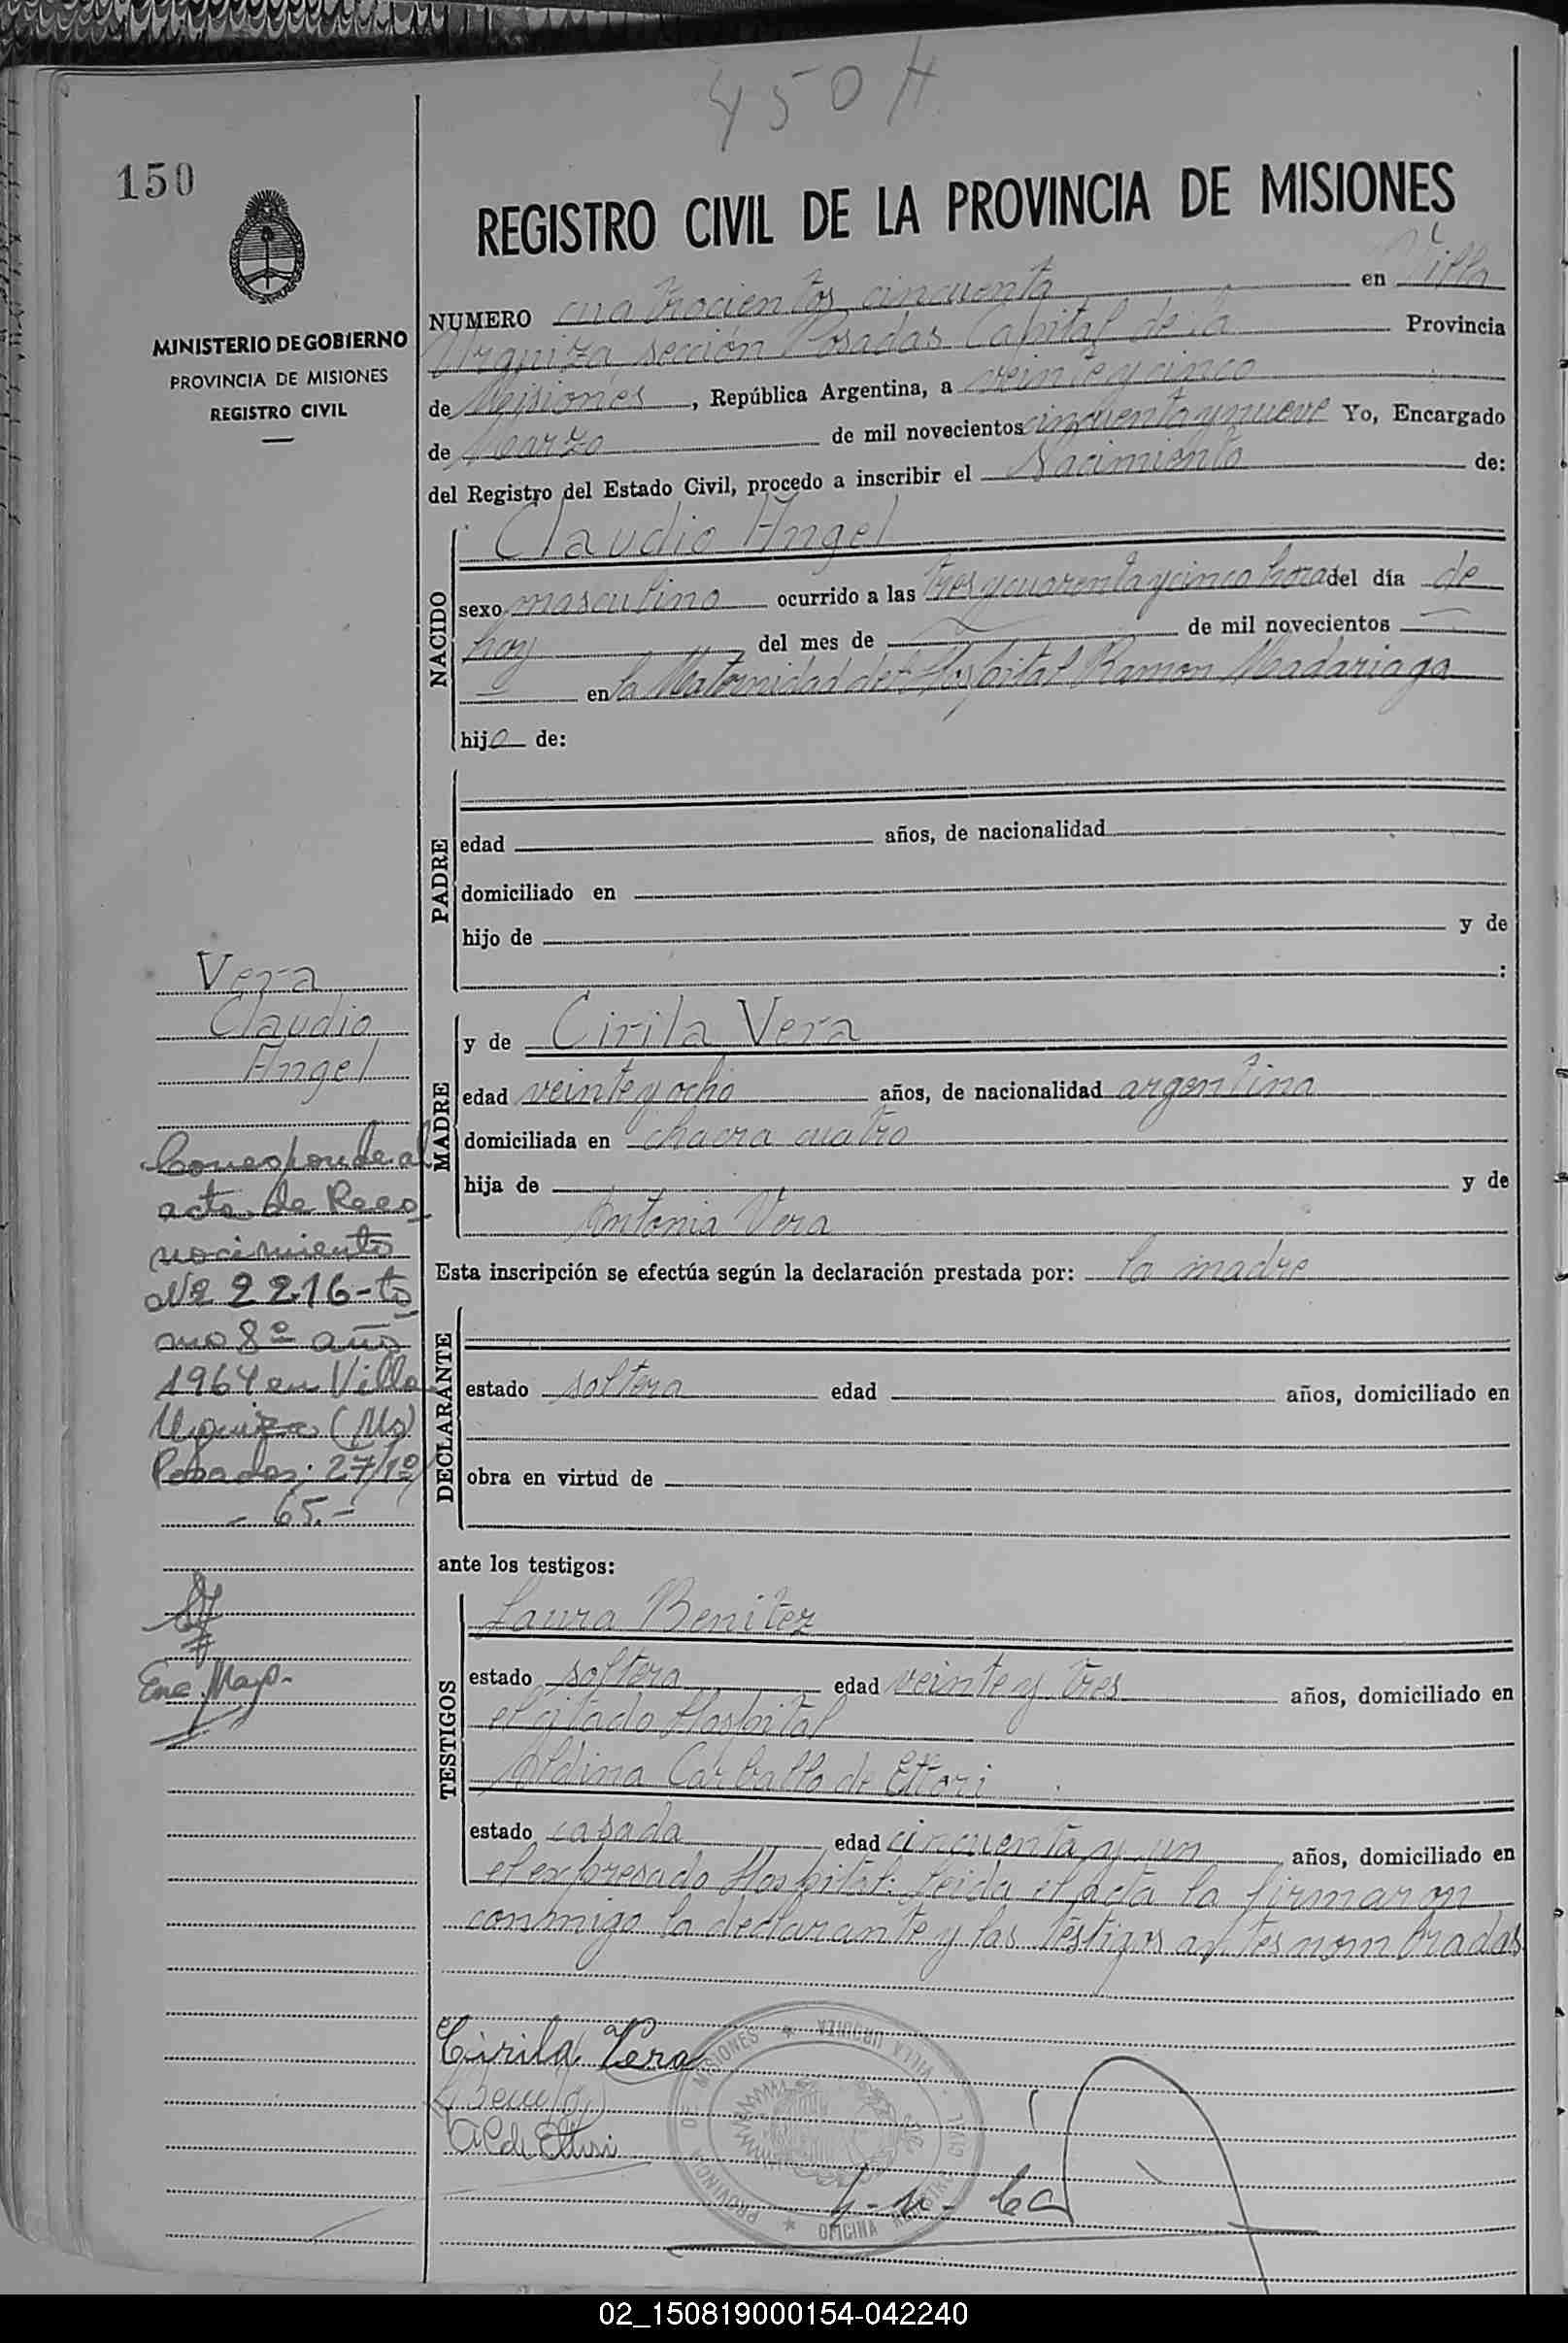 450 H
150
MINISTERIO DE GOBIERNO
PROVINCIA DE MISIONES
REGISTRO CIVIL
REGISTRO CIVIL DE LA PROVINCIA DE MISIONES
NUMERO cuatrocientos cincuenta en Villa
Urquiza sección Posadas Capital de la Provincia
de Misiones, República Argentina, a veinte y cinco
de Marzo de mil novecientos cincuenta y nueve Yo, Encargado
del Registro del Estado Civil, procedo a inscribir el Nacimiento de:
NACIDO
Claudio Angel
sexo masculino ocurrido a las tres y cuarenta y cinco horas del día de
hoy del mes de — de mil novecientos —
— en la Maternidad del Hospital Ramon Madariaga
hijo de:
PADRE
edad años, de nacionalidad
domiciliado en
hijo de y de
:
MADRE
y de Cirila Vera
edad veinte y ocho años, de nacionalidad argentina
domiciliada en chacra cuatro
hija de y de
Antonia Vera
Esta inscripción se efectúa según la declaración prestada por: la madre
DECLARANTE
estado soltera edad años, domiciliado en
obra en virtud de
ante los testigos:
TESTIGOS
Laura Benitez
estado soltera edad veinte y tres años, domiciliado en
el citado Hospital
Aldina Carballo de Ettori
estado casada edad cincuenta y un años, domiciliado en
el expresado Hospital. Leida el acta la firmaron
conmigo la declarante y las testigos antes nombradas
Cirila Vera
A C de Ettori
PROVINCIA DE MISIONES * VILLA URQUIZA * OFICINA REGISTRO CIVIL
Vera
Claudio
Angel
Corresponde al
acta de Reco
nocimiento
Nº 2216-to
mo 8º año
1964 en Villa
Urquiza (Ms)
Posadas; 27/1º/
- 65.-
02_150819000154-042240